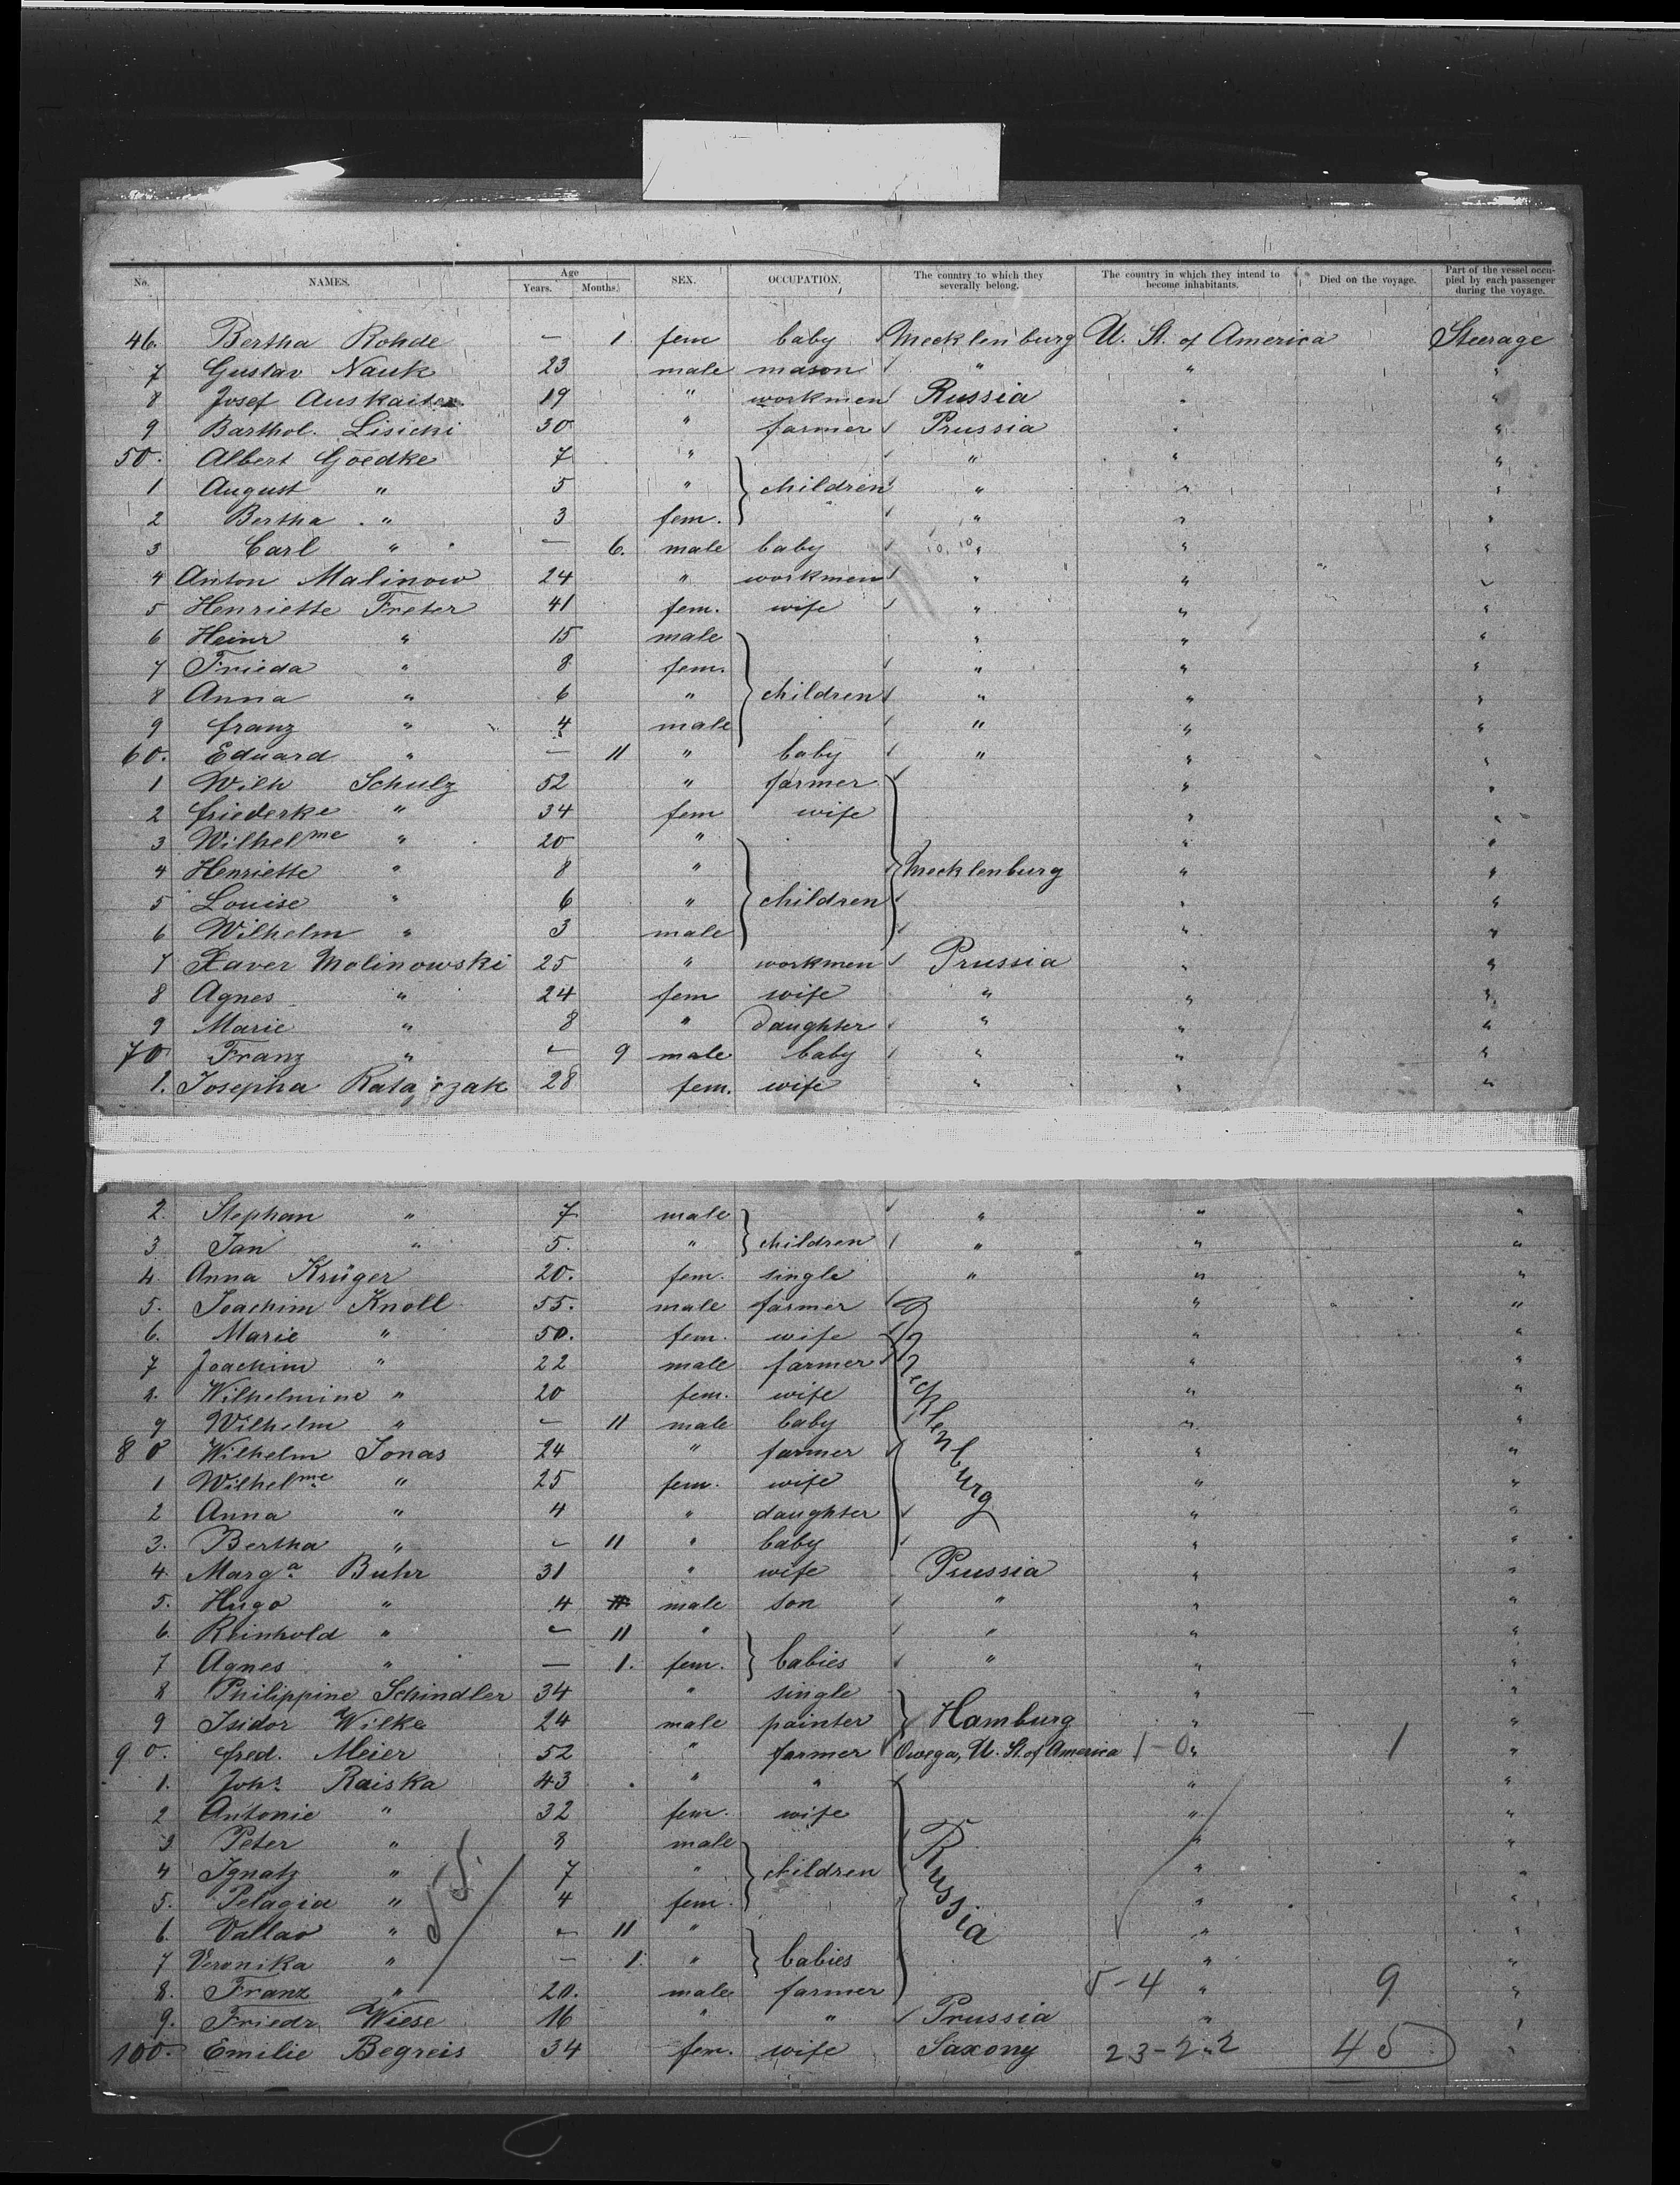 No. NAMES. Age Years. Months. SEX. OCCUPATION. The country to which they severally belong. The country in which they intend to become inhabitants. Died on the voyage. Part of the vessel occupied by each passenger during the voyage.
46. Bertha Rohde — 1 fem baby Mecklenburg U. St. of America Steerage
7 Gustav Nauk 23 male mason " " "
8 Josef Auskaiter 19 " workmen Russia " "
9 Barthol. Lisicki 30 " farmer Prussia " "
50. Albert Goedke 7 " " " "
1 August " 5 " children " " "
2 Bertha " 3 fem. " " "
3 Carl " — 6. male baby " " "
4 Anton Malinow 24 " workmen " " "
5 Henriette Freter 41 fem. wife " " "
6 Heinr " 15 male " " "
7 Frieda " 8 fem. " " "
8 Anna " 6 " children " " "
9 Franz " 4 male " " "
60. Eduard " — 11 " baby " " "
1 Wilh Schulz 52 " farmer " "
2 Friederke " 34 fem wife " "
3 Wilhelme " 20 " " "
4 Henriette " 8 " Mecklenburg " "
5 Louise " 6 " children " "
6 Wilhelm " 3 male " "
7 Xaver Molinowski 25 " workmen Prussia " "
8 Agnes " 24 fem wife " " "
9 Marie " 8 " daughter " " "
70 Franz " — 9 male baby " " "
1. Josepha Ratajczak 28 fem. wife " " "
2. Stephan " 7 male " " "
3. Jan " 5. " children " " "
4. Anna Krüger 20. fem. single " " "
5. Joachim Knoll 55. male farmer Mecklenburg " "
6. Marie " 50. fem. wife " "
7 Joachim " 22 male farmer " "
8. Wilhelmine " 20 fem. wife " "
9 Wilhelm " — 11 male baby " "
80 Wilhelm Jonas 24 " farmer " "
1 Wilhelme " 25 fem. wife " "
2 Anna " 4 " daughter " "
3. Bertha " — 11 " baby " "
4. Marga Buhr 31 " wife Prussia " "
5. Hugo " 4 male son " " "
6. Reinhold " — 11 " " " "
7 Agnes " — 1. fem. babies " " "
8 Philippine Schindler 34 " single " "
9 Isidor Wilke 24 male painter Hamburg " "
90. Fred. Meier 52 " farmer Owega, U. St. of America 1-0 " 1 "
1. Johs. Raiska 43 " " Russia " "
2 Antonie " 32 fem. wife " "
3 Peter " 8 male " "
4 Ignatz " 7 " children " "
5. Pelagia " 4 fem. " "
6. Vallav " — 11 " " "
7 Veronika " — 1. " babies " "
8. Franz " 20. male farmer 5-4 " 9 "
9. Friedr. Wiese 16 " " Prussia " "
100. Emilie Begreis 34 fem. wife Saxony 23-22 45 "
55